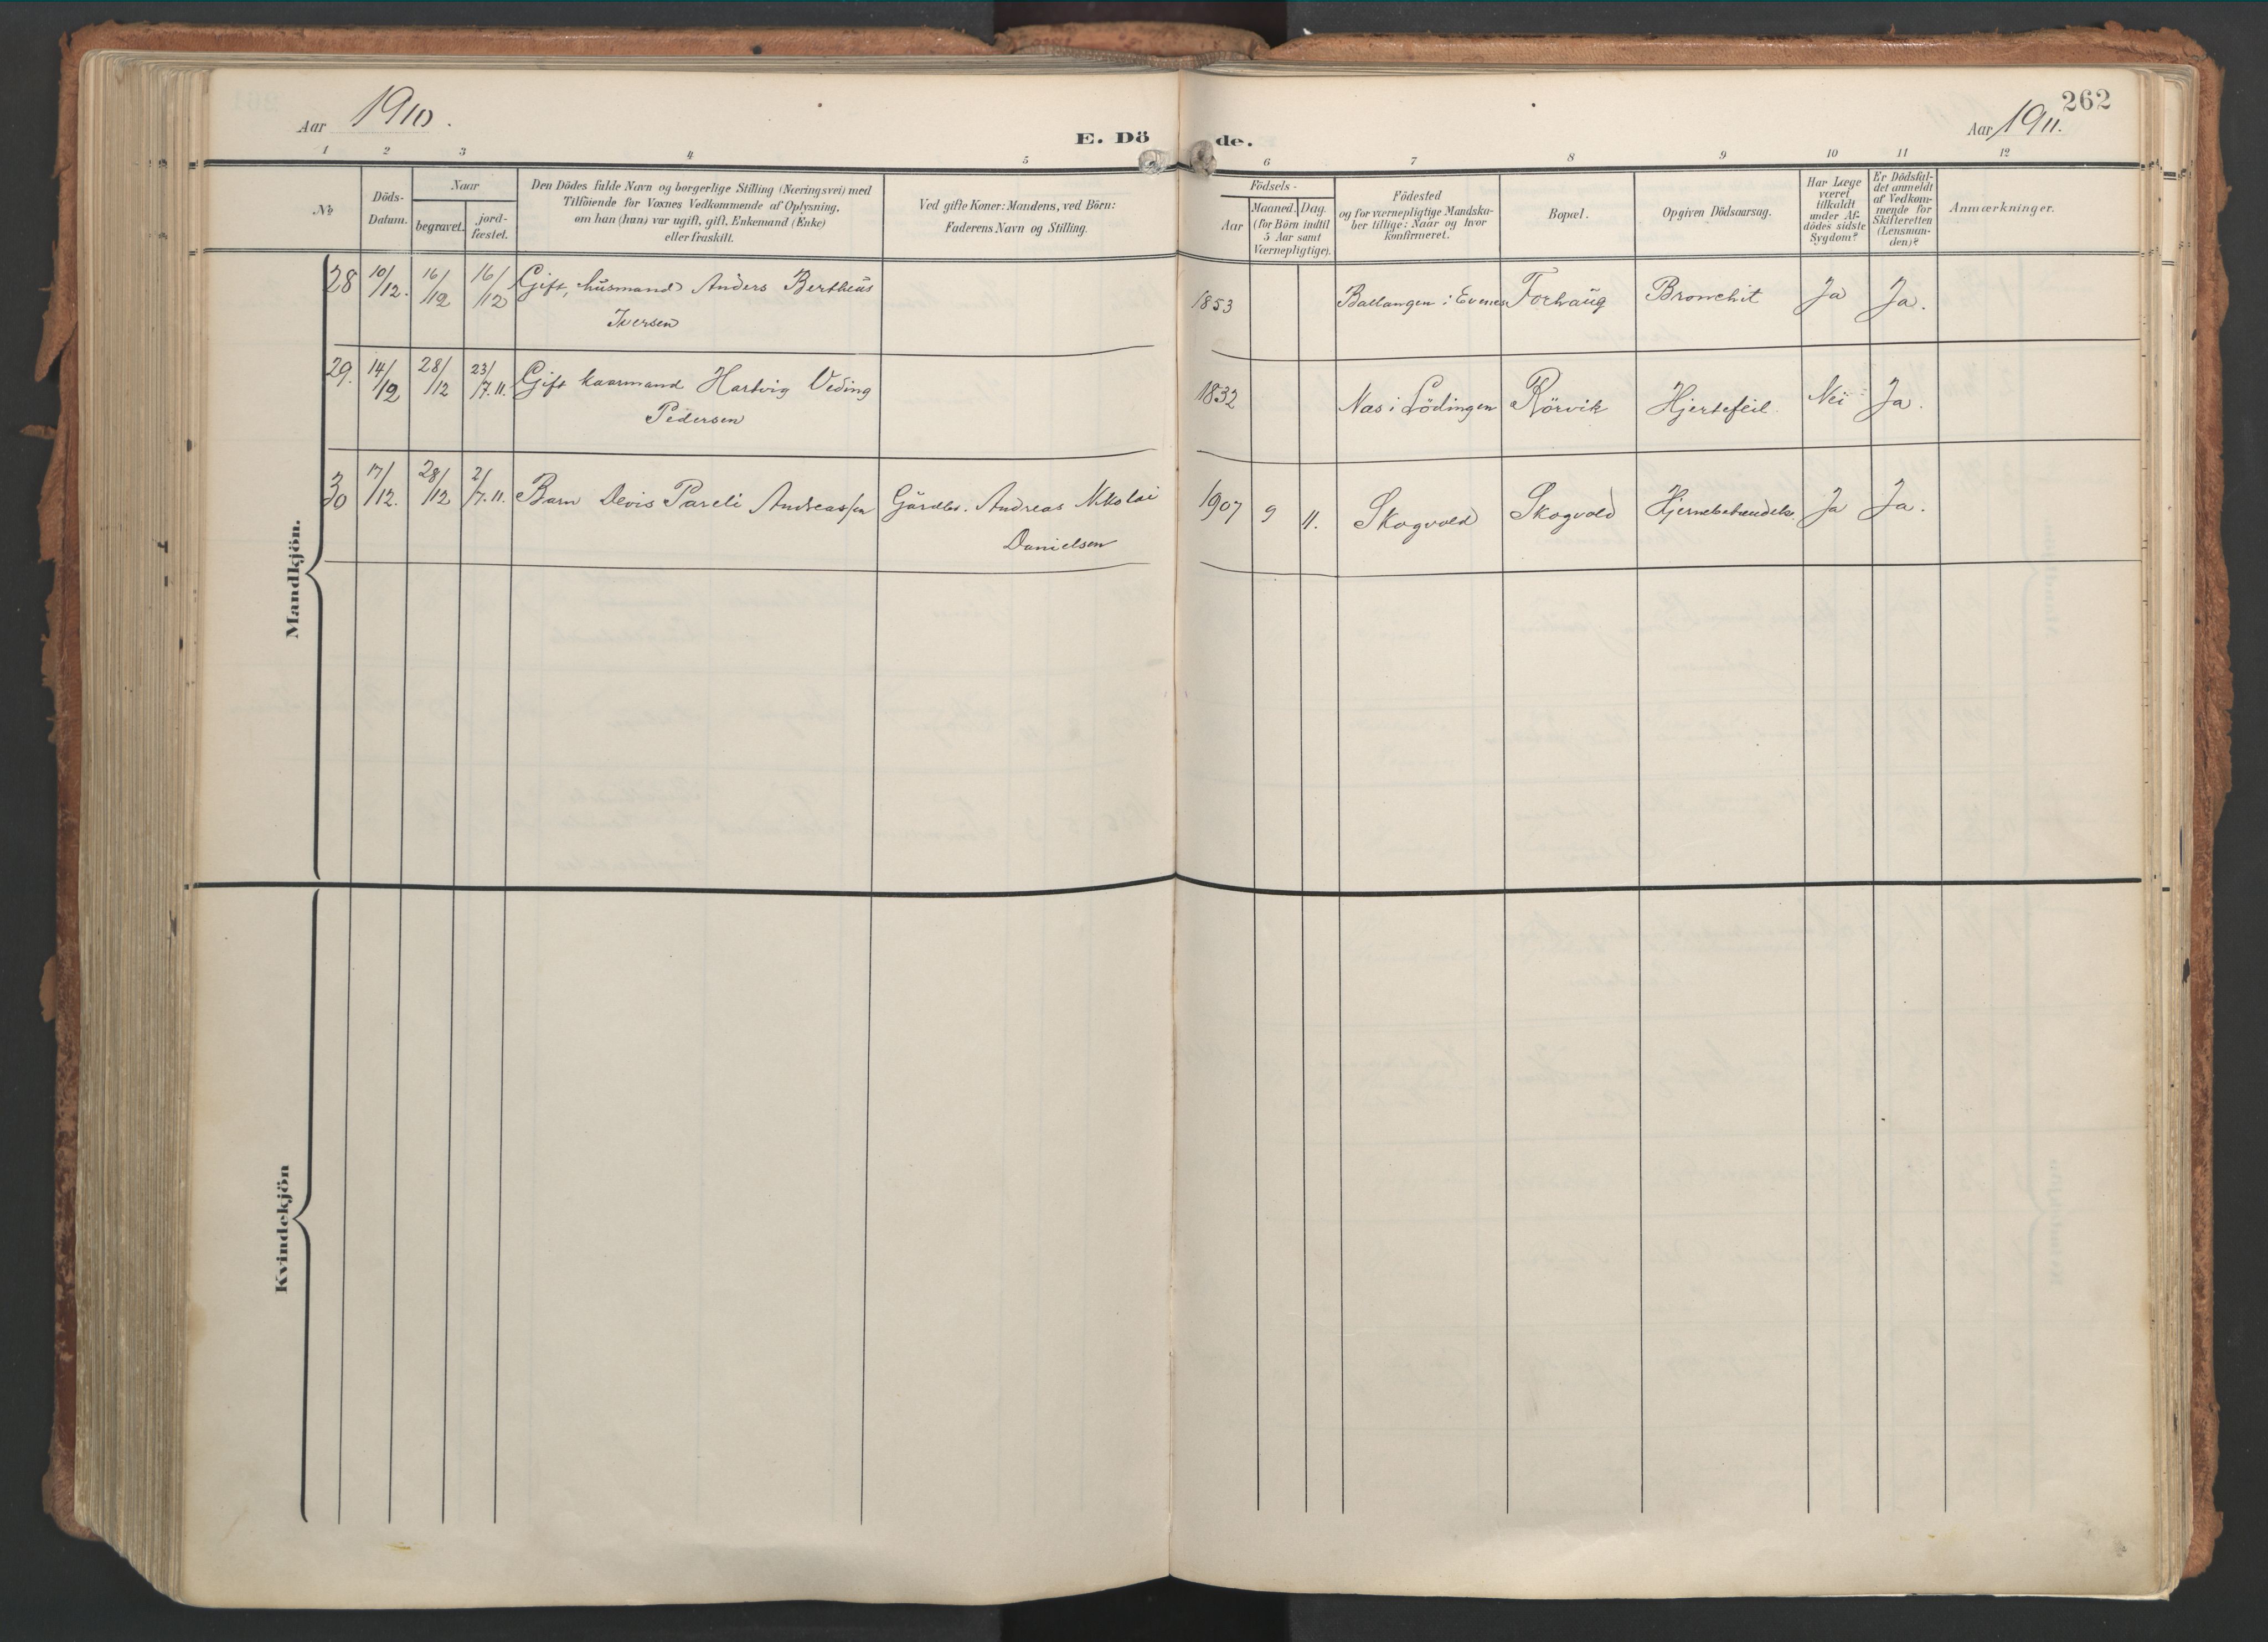 262
Aar 1910.
Aar 1911.
E. Döde.
1 2 3 4 5 6 7 8 9 10 11 12
No
Döds-
Datum.
Naar
begravet.
jord-
fæstet.
Den Dödes fulde Navn og borgerlige Stilling (Næringsvei) med
Tilföiende for Voxnes Vedkommende af Oplysning,
om han (hun) var ugift, gift, Enkemand (Enke)
eller fraskilt.
Ved gifte Koner: Mandens, ved Börn:
Faderens Navn og Stilling.
Födsels-
Aar
Maaned. Dag.
(for Börn indtil
5 Aar samt
Værnepligtige).
Födested
og for værnepligtige Mandska-
ber tillige: Naar og hvor
konfirmeret.
Bopæl.
Opgiven Dödsaarsag.
Har Læge
været
tilkaldt
under Af-
dödes sidste
Sygdom?
Er Dödsfal-
det anmeldt
af Vedkom-
mende for
Skifteretten
(Lensman-
den)?
Anmærkninger.
Mandkjön.
28 10/12. 16/12 16/12 Gift, husmand Anders Bertheus 1853 Ballangen i Evenes Forhaug Bronchit Ja Ja.
Iversen
29. 14/12 28/12 23/7.11. Gift kaarmand Hartvig Veding 1832 Næs i Lödingen Rörvik Hjertefeil. Nei Ja.
Pedersen
30 17/12. 28/12 2/7.11. Barn Devis Pareli Andreassen Gårdbr. Andreas Nikolai 1907 9 11. Skogvold Skogvold Hjernebetændelse. Ja Ja.
Danielsen
Kvindekjön